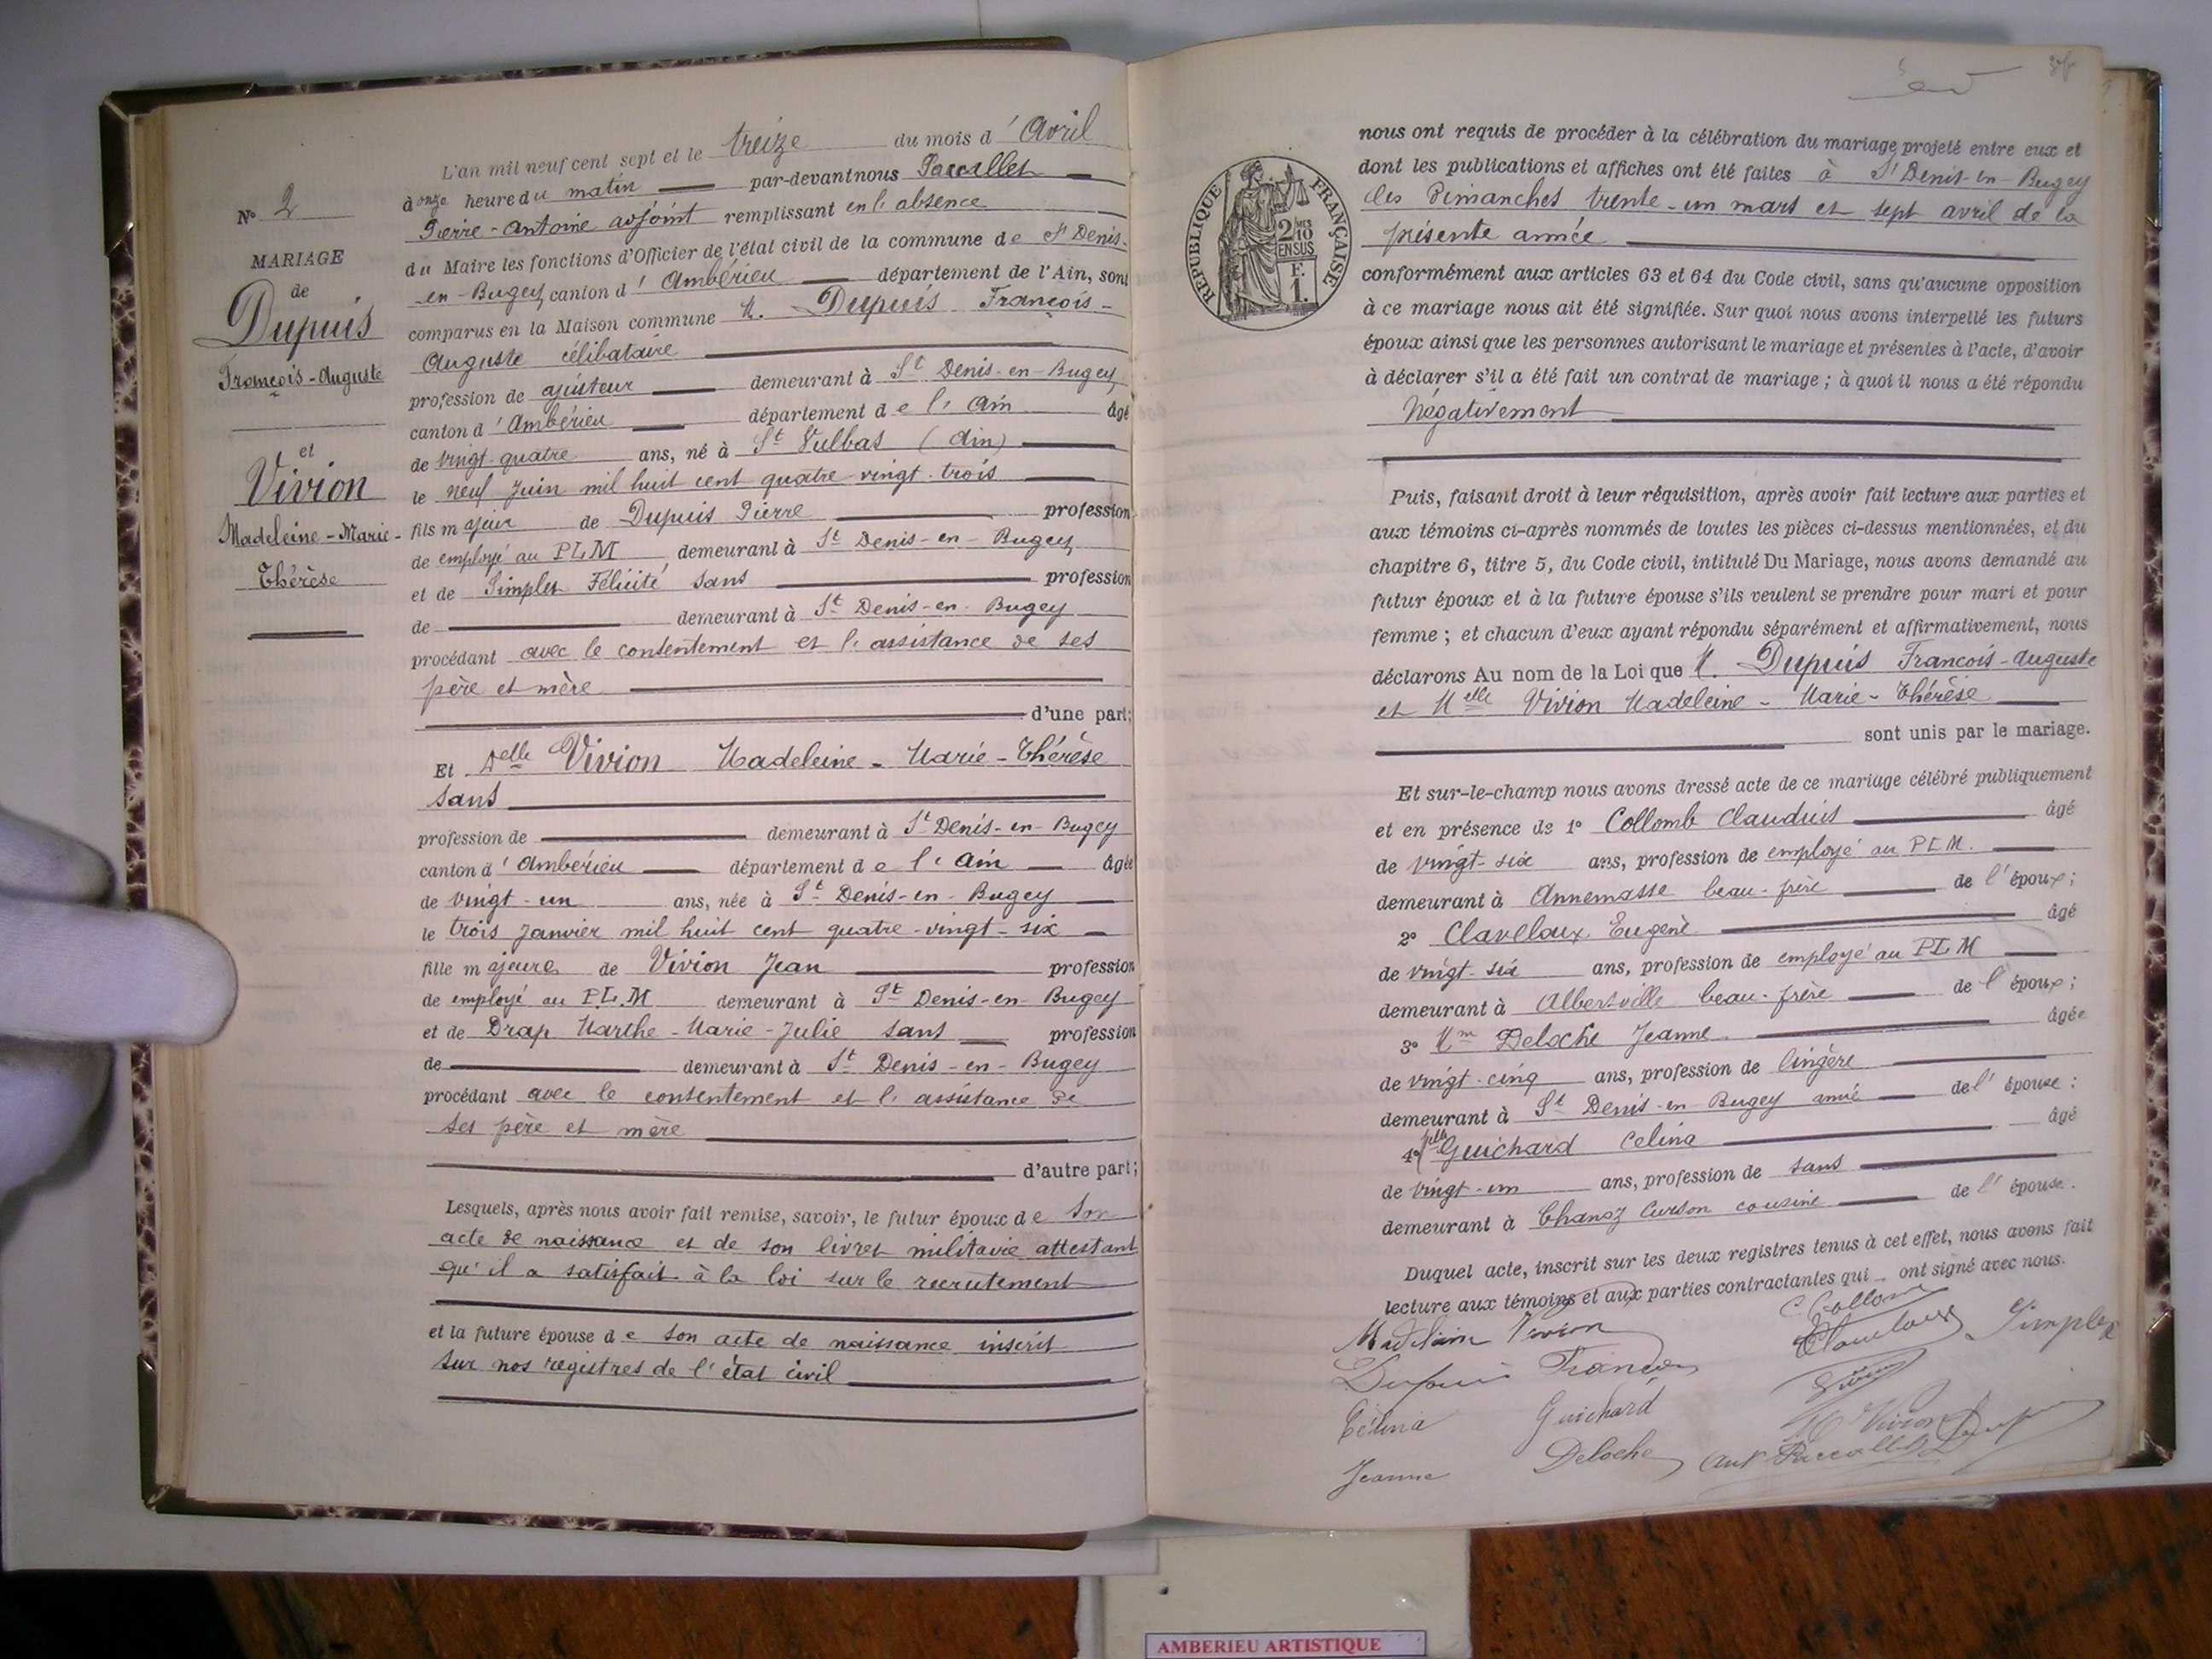 N° 2
MARIAGE
de
Dupuis
François-Auguste
et
Vivion
Madeleine-Marie-
Thérèse
L'an mil neuf cent sept et le treize du mois d'Avril
à onze heure du matin par-devant nous Paccallet
Pierre-Antoine adjoint remplissant en l'absence
du Maire les fonctions d'Officier de l'état civil de la commune de St Denis-
en-Bugey canton d'Ambérieu département de l'Ain, sont
comparus en la Maison commune M. Dupuis François-
Auguste célibataire
profession de ajusteur demeurant à St Denis-en-Bugey
canton d'Ambérieu département de l'Ain âgé
de vingt-quatre ans, né à St Vulbas (Ain)
le neuf Juin mil huit cent quatre-vingt-trois
fils majeur de Dupuis Pierre profession
de employé au PLM demeurant à St Denis-en-Bugey
et de Simplex Félicité sans profession
de demeurant à St Denis-en-Bugey
procédant avec le consentement et l'assistance de ses
père et mère
d'une part;
Et Delle Vivion Madeleine-Marie-Thérèse
sans
profession de demeurant à St Denis-en-Bugey
canton d'Ambérieu département de l'Ain âgée
de vingt-un ans, née à St Denis-en-Bugey
le trois Janvier mil huit cent quatre-vingt-six
fille majeure de Vivion Jean profession
de employé au P.L.M demeurant à St Denis-en-Bugey
et de Drap Marthe-Marie-Julie sans profession
de demeurant à St Denis-en-Bugey
procédant avec le consentement et l'assistance de
ses père et mère
d'autre part;
Lesquels, après nous avoir fait remise, savoir, le futur époux de son
acte de naissance et de son livret militaire attestant
qu'il a satisfait à la loi sur le recrutement
et la future épouse de son acte de naissance inscrit
sur nos registres de l'état civil
RÉPUBLIQUE FRANÇAISE
2/10 EN SUS
F. 1.
nous ont requis de procéder à la célébration du mariage projeté entre eux et
dont les publications et affiches ont été faites à St Denis-en-Bugey
les Dimanches trente-un mars et sept avril de la
présente année
conformément aux articles 63 et 64 du Code civil, sans qu'aucune opposition
à ce mariage nous ait été signifiée. Sur quoi nous avons interpellé les futurs
époux ainsi que les personnes autorisant le mariage et présentes à l'acte, d'avoir
à déclarer s'il a été fait un contrat de mariage ; à quoi il nous a été répondu
Négativement
Puis, faisant droit à leur réquisition, après avoir fait lecture aux parties et
aux témoins ci-après nommés de toutes les pièces ci-dessus mentionnées, et du
chapitre 6, titre 5, du Code civil, intitulé Du Mariage, nous avons demandé au
futur époux et à la future épouse s'ils veulent se prendre pour mari et pour
femme ; et chacun d'eux ayant répondu séparément et affirmativement, nous
déclarons Au nom de la Loi que M. Dupuis François-Auguste
et Melle Vivion Madeleine-Marie-Thérèse
sont unis par le mariage.
Et sur-le-champ nous avons dressé acte de ce mariage célébré publiquement
et en présence de 1° Collomb Claudius âgé
de vingt-six ans, profession de employé au P.L.M.
demeurant à Annemasse beau-frère de l'époux;
2° Claveloux Eugène âgé
de vingt-six ans, profession de employé au PLM
demeurant à Albertville beau-frère de l'époux;
3° Mm Deloche Jeanne âgée
de vingt-cinq ans, profession de lingère
demeurant à St Denis-en-Bugey amie de l'épouse;
4° Melle Guichard Celina âgé
de vingt-un ans, profession de sans
demeurant à Chanoz Curson cousine de l'épouse.
Duquel acte, inscrit sur les deux registres tenus à cet effet, nous avons fait
lecture aux témoins et aux parties contractantes qui ont signé avec nous.
Madeleine Vivion C. Collomb
Claveloux Simplex
Dupuis François Vivion
Célina Guichard Vivion Dupuis
Jeanne Deloche Ant Paccallet
AMBERIEU ARTISTIQUE